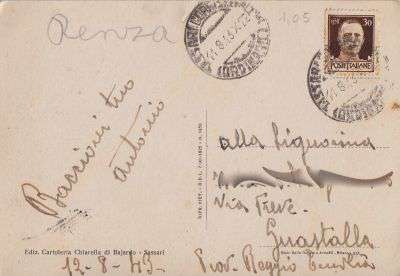 Renza
1,05
30
POSTE ITALIANE
Bacioni tuo
Antonio
alla Signorina
Via Pieve
Guastalla
Prov. Reggio Emilia
Ediz. Cartoleria Chiarella di Bajardo - Sassari
13-8-43-